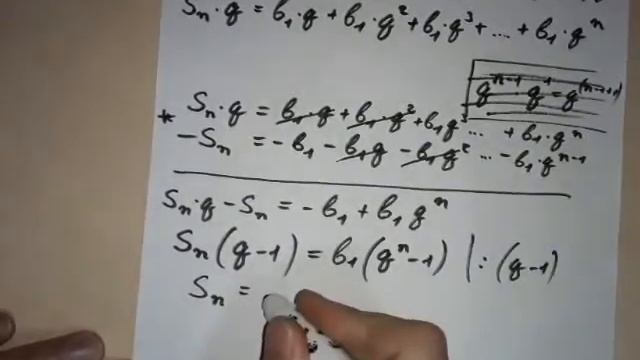 Sₙ·q = b₁·q + b₁·q² + b₁·q³ + .... + b₁·qⁿ
qⁿ⁻¹·q¹ = q⁽ⁿ⁻¹⁺¹⁾
* Sₙ·q = b₁·q + b₁·q² + b₁q³ ... + b₁·qⁿ
−Sₙ = −b₁ − b₁q − b₁q² ... − b₁·qⁿ⁻¹
Sₙ·q − Sₙ = −b₁ + b₁qⁿ
Sₙ(q−1) = b₁(qⁿ−1) |:(q−1)
Sₙ =